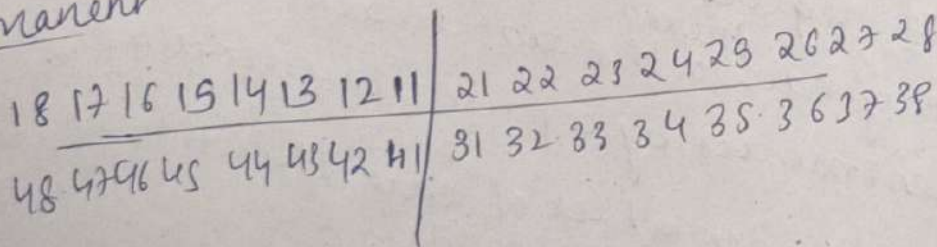 18 17 16 15 14 13 12 11 21 22 23 24 25 26 27 28
48 47 46 45 44 43 42 41 31 32 33 34 35 36 37 38